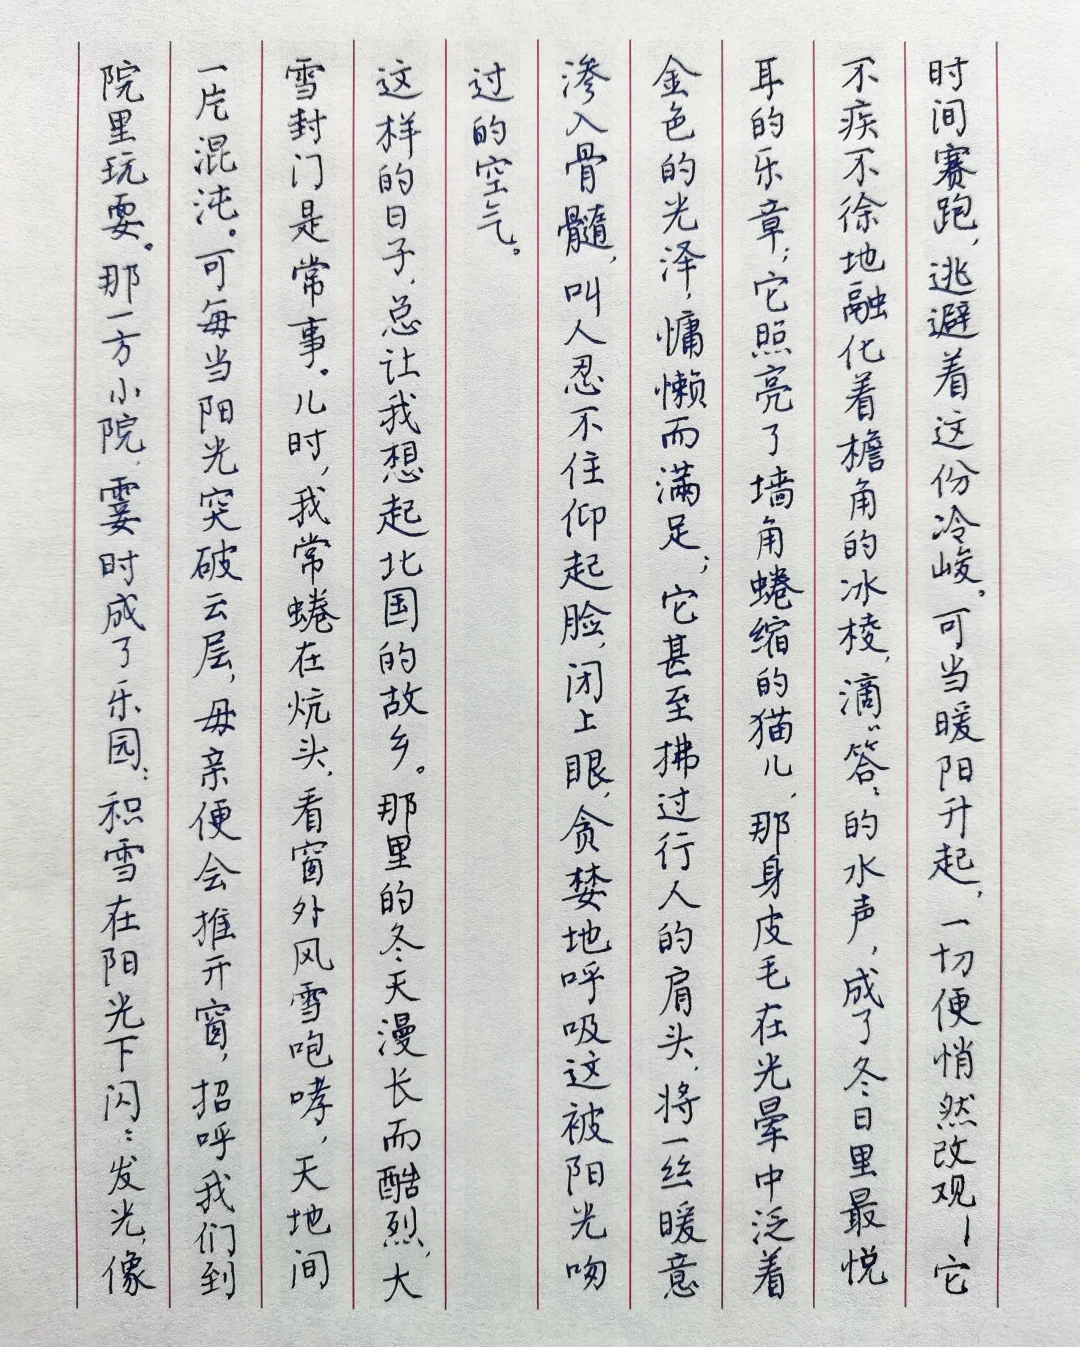 时间赛跑，逃避着这份冷峻。可当暖阳升起，一切便悄然改观—它
不疾不徐地融化着檐角的冰棱，滴〻答〻的水声，成了冬日里最悦
耳的乐章；它照亮了墙角蜷缩的猫儿，那身皮毛在光晕中泛着
金色的光泽，慵懒而满足；它甚至拂过行人的肩头，将一丝暖意
渗入骨髓，叫人忍不住仰起脸，闭上眼，贪婪地呼吸这被阳光吻
过的空气。
这样的日子，总让我想起北国的故乡。那里的冬天漫长而酷烈，大
雪封门是常事。儿时，我常蜷在炕头，看窗外风雪咆哮，天地间
一片混沌。可每当阳光突破云层，母亲便会推开窗，招呼我们到
院里玩耍。那一方小院，霎时成了乐园：积雪在阳光下闪〻发光，像